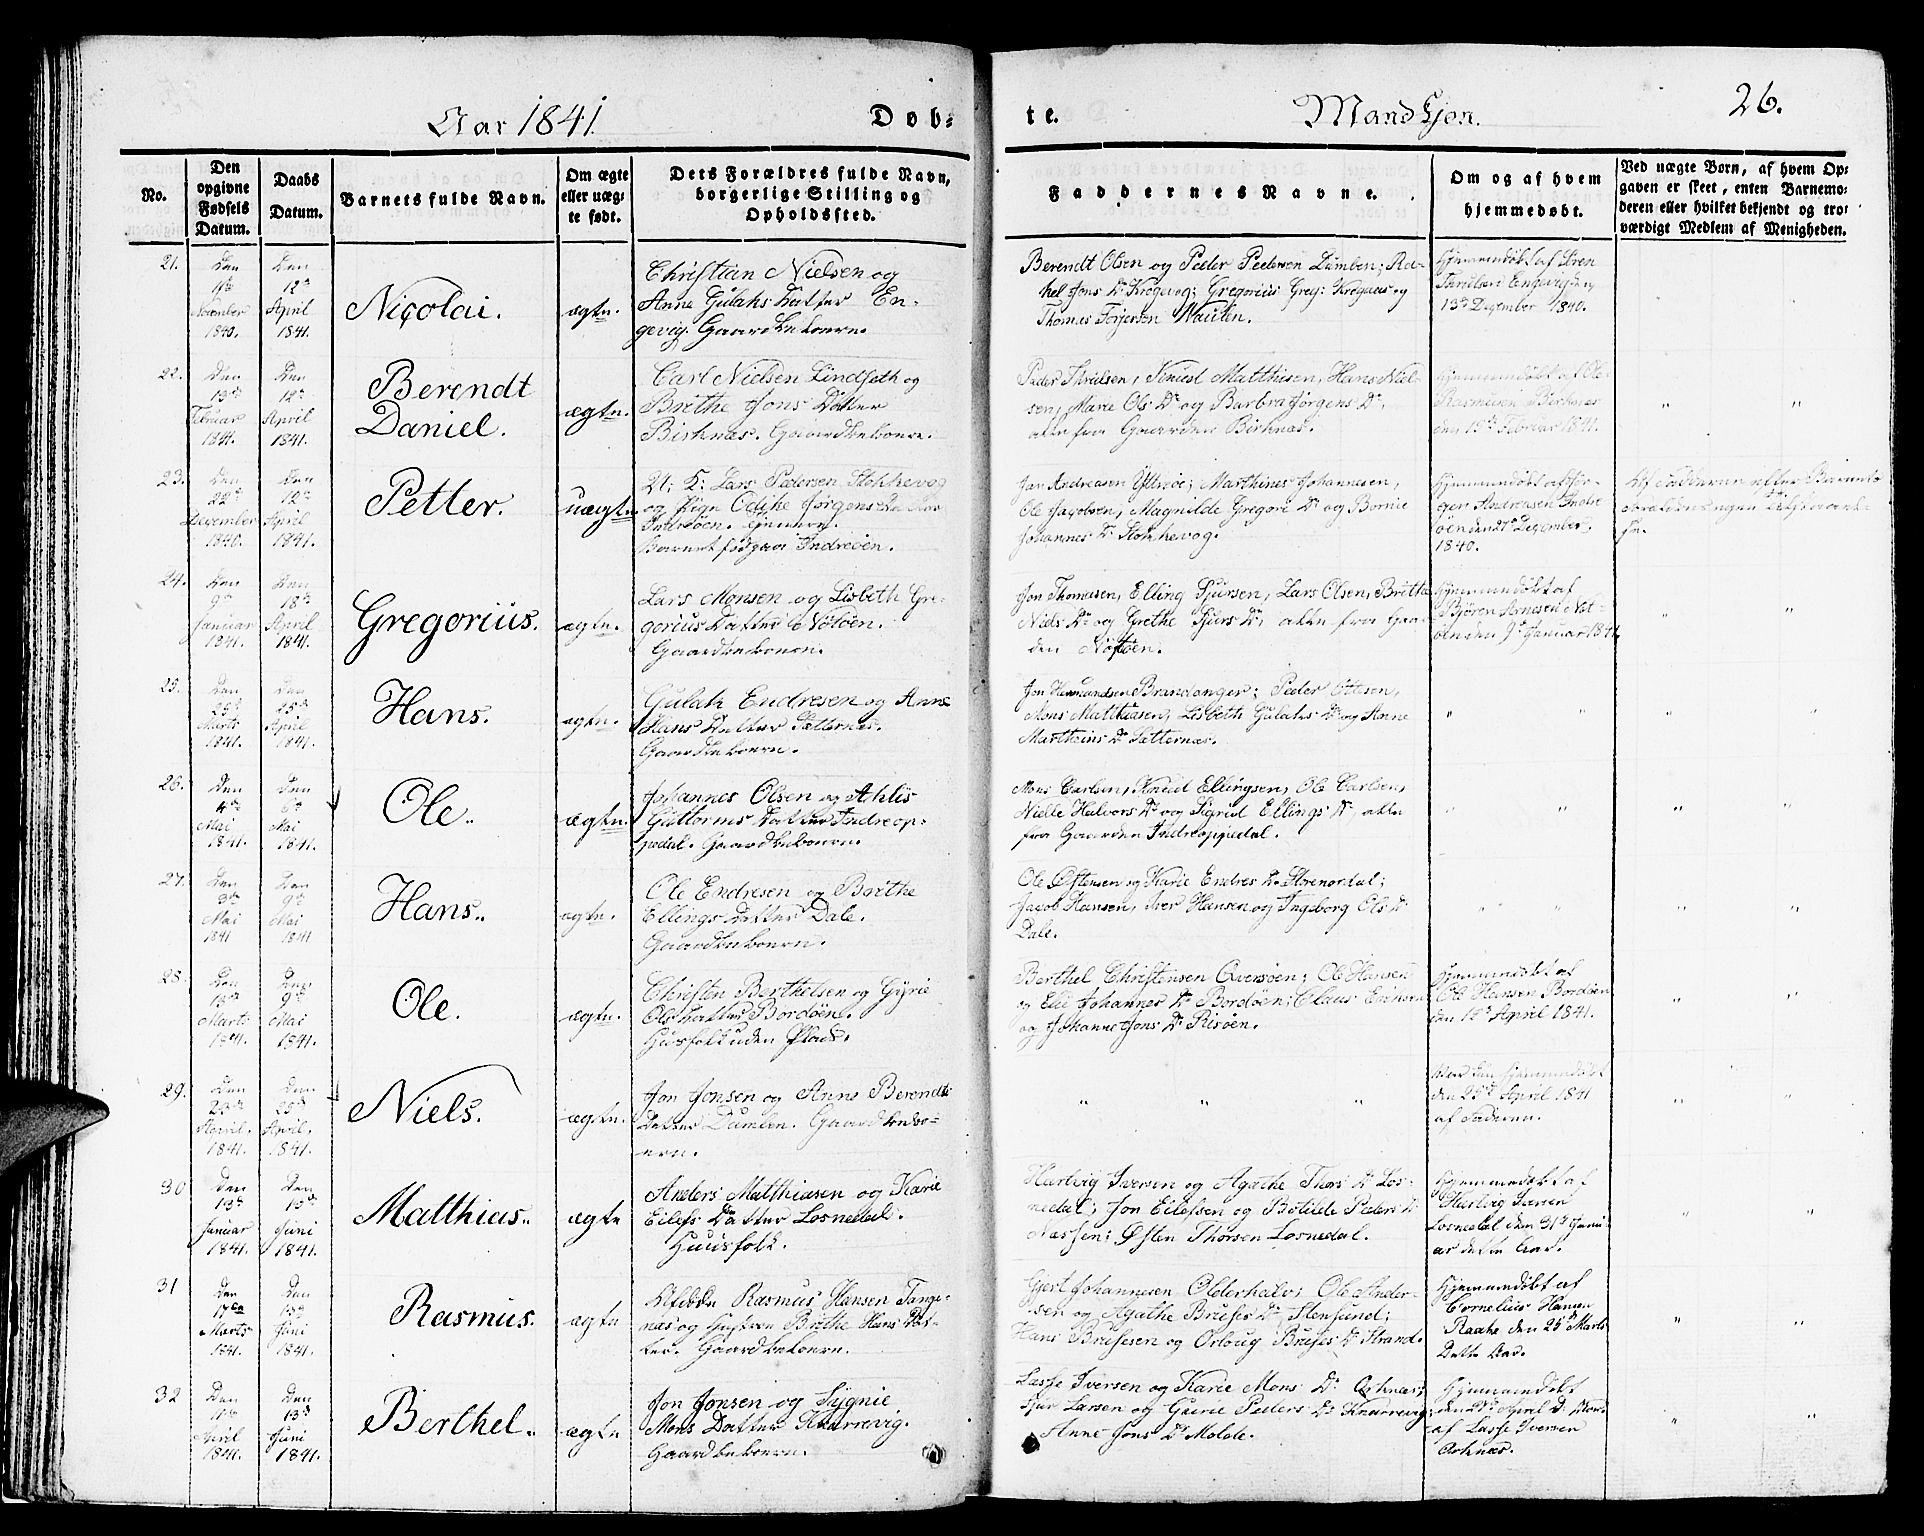 Aar 1841.
Døb-
te.
Mandkjøn.
26.
No.
Den opgivne Fødsels Datum.
Daabs Datum.
Barnets fulde Navn.
Om ægte eller uægte født.
Dets Forældres fulde Navn, borgerlige Stilling og Opholdssted.
Faddernes Navne.
Om og af hvem hjemmedøbt.
Ved uægte Børn, af hvem Opgaven er skeet, enten Barnemoderen eller hvilket bekjendt og troværdigt Medlem af Menigheden.
21.
Den
November
1840.
Den
12te
April
1841.
Nicolai.
ægte.
Christian Nielsen og
Anne Gulaks Datter En-
gevig. Gaardbeboere.
Berendt Olsen og Peder Pedersen Dumben; Ra-
hel Jons Dr Krogevog; Gregorius Greg: Krogevog og
Thomas Torjersen
Hjemmedøbt af
13de Dezember 1840.
22.
Den
13de
Februar
1841.
Den
12te
April
1841.
Berendt
Daniel.
ægte.
Carl Nielsen Lindseth og
Brithe Jons Datter
Birknæs. Gaardbeboere.
Peder Thrulsen, Knud Matthisen, Hans Niel-
sen, Marie Ols Dr og Barbra Jørgens Dr,
alle fra Gaarden Birknæs.
Hjemmedøbt af Ole
Rasmusen Birknæs
den 19de Februar 1841.
23.
Den
22de
Dezember
1840.
Den
12te
April
1841.
Petter.
uægte.
Lars Pedersen Stokkevog
og Pige Jørgens
Indreøen.
Barnet født paa Indreøen.
Jon Andreasen Ytterøe; Marthinus Johannesen,
Ole Jacobsen, Magnilde Gregori Dr og Bornie
Johannes Dr Stokkevog.
Hjemmedøbt af Jør-
gen Andreasen Indre
øen den 27de Dezember
1840.
Af Fadderne efter Barnets
24.
Den
9de
Januar
1841.
Den
18de
April
1841.
Gregorius.
ægte.
Lars Monsen og Lisbeth Gre-
gorius Datter Nøtøen.
Gaardbeboere.
Jon Thomasen, Elling Sjursen, Lars Olsen, Britha
Niels Dr og Grethe Sjurs Dr, alle fra Gaar-
den Nøtøen.
Hjemmedøbt af
Bjøren Arnesen Nøt-
øen den 9de Januar 1841.
25.
Den
25de
Marts
1841.
Den
25de
April
1841.
Hans.
ægte.
Gulak Endresen og Anne
Hans Datter Sætternæs.
Gaardbeboere.
Jon Hermundsen Brandanger; Peder Ottesen,
Mons Matthiasen, Lisbeth Gulaks Dr og Anne
Marthins Dr Sætternæs.
26.
Den
4de
Mai
1841.
Den
6te
Mai
1841.
Ole.
ægte.
Johannes Olsen og Ahlis
Guttorms Datter Indreop-
pedal. Gaardbeboere.
Mons Carlsen, Knud Ellingsen, Ole Carlsen,
Nielle Halvors Dr og Sigrid Ellings Dr, alle
fra Gaarden Indreoppedal.
27.
Den
3de
Mai
1841
Den
9de
Mai
1841
Hans.
ægte.
Ole Endresen og Brithe
Ellings Datter Dale.
Gaardbeboere.
Ole Østensen og Karie Endres Dr Storenordal;
Jacob Hansen, Iver Hansen og Ingeborg Ols Dr
Dale.
28.
Den
Marts
1841.
Den
9de
Mai
1841.
Ole.
ægte.
Christen Berthelsen og Gyrie
Ols Datter Bordøen.
Huusfolk uden Plads.
Berthel Christensen Qversøen; Ole Hansen
og Elie Johannes Dr Bordøen; Claus
og Johanne Jons Dr Risøen.
Hjemmedøbt af
Ole Hansen Bordøen
den 12te April 1841.
29.
Den
April
1841.
Den
25de
April
1841.
Niels.
ægte.
Jon Jonsen og Anne Berendts
Datter Dumben. Gaardbebo-
ere.
hjemmedøbt
den 25de April 1841
af Faderen.
30
Den
13de
Januar
1841.
Den
13de
Juni
1841.
Matthias.
ægte
Anders Matthiasen og Karie
Eilefs Datter Losnedal.
Huusfolk.
Hartvig Iversen og Agathe Thors Dr Los-
nedal; Jon Eilefsen og Botilde Peders Dr
Næssen; Østen Thorsen Losnedal.
Hjemmedøbt af
Hartvig Iversen
Losnedal den 31te Janu-
ar dette Aar.
31
Den
Marts
1841.
Den
13de
Juni
1841.
Rasmus.
ægte
Afdøde Rasmus Hansen Tange-
næs og Hustru Brithe Hans Dat-
ter. Gaardbeboere.
Gjert Johannesen Olderhalv; Ole Ander-
sen og Agathe Brufes Dr, Stensund;
Hans Brufesen og Orloug Brufes Dr Strand.
Hjemmedøbt af
Cornelius Hansen
Raahe den 25de Marts
Dette Aar.
32
Den
April
1841.
Den
13de
Juni
1841.
Berthel.
ægte
Jon Jonsen og Sygnie
Mons Datter Knarrevig.
Gaardbeboere.
Lasse Iversen og Karie Mons Dr Arknæs;
Sjur Larsen og Gurie Peders Dr Knarrevig;
Anne Jons Dr Molde.
Hjemmedøbt
af Lasse Iversen
Arknæs.